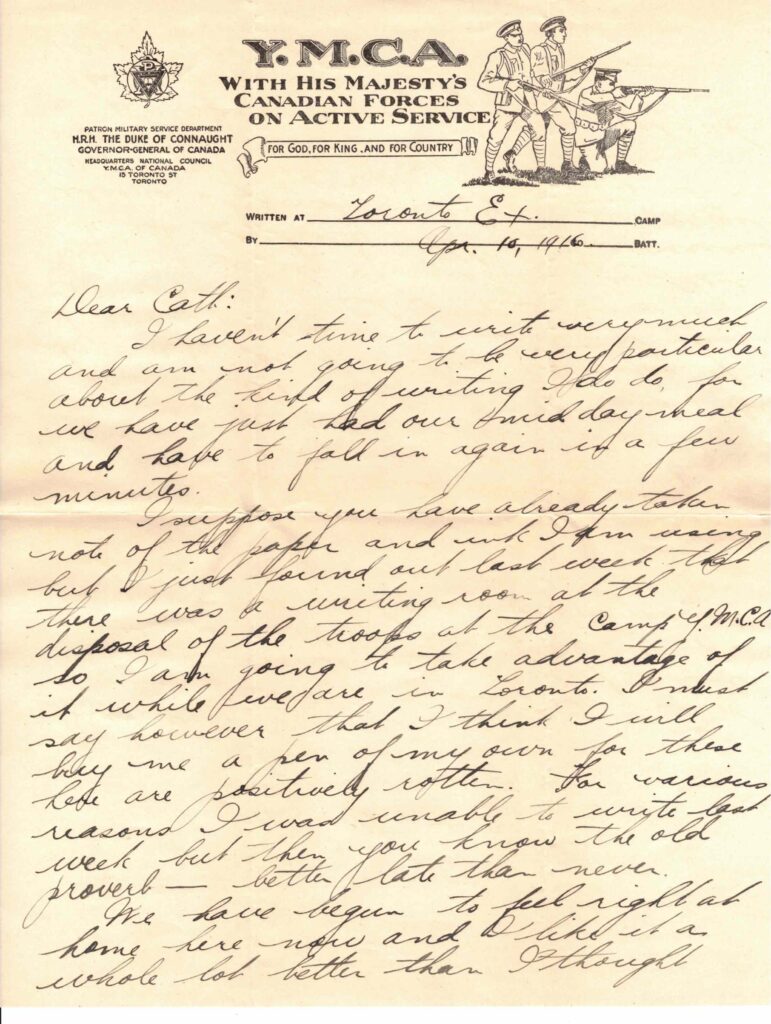 Y.M.C.A.
WITH HIS MAJESTY'S
CANADIAN FORCES
ON ACTIVE SERVICE
FOR GOD, FOR KING, AND FOR COUNTRY
PATRON MILITARY SERVICE DEPARTMENT
H.R.H. THE DUKE OF CONNAUGHT
GOVERNOR-GENERAL OF CANADA
HEADQUARTERS NATIONAL COUNCIL
Y.M.C.A. OF CANADA
15 TORONTO ST
TORONTO
WRITTEN AT Toronto Ex. CAMP
BY Apr. 10, 1916. BATT.
Dear Cath:
I haven't time to write very much
and am not going to be very particular
about the kind of writing I do do, for
we have just had our mid day meal
and have to fall in again in a few
minutes.
I suppose you have already taken
note of the paper and ink I am using
but I just found out last week that
there was a writing room at the
disposal of the troops at the Camp Y.M.C.A
so I am going to take advantage of
it while we are in Toronto. I must
say however that I think I will
buy me a pen of my own for these
here are positively rotten. For various
reasons I was unable to write last
week but then you know the old
proverb — better late than never.
We have begun to feel right at
home here now and I like it a
whole lot better than I thought